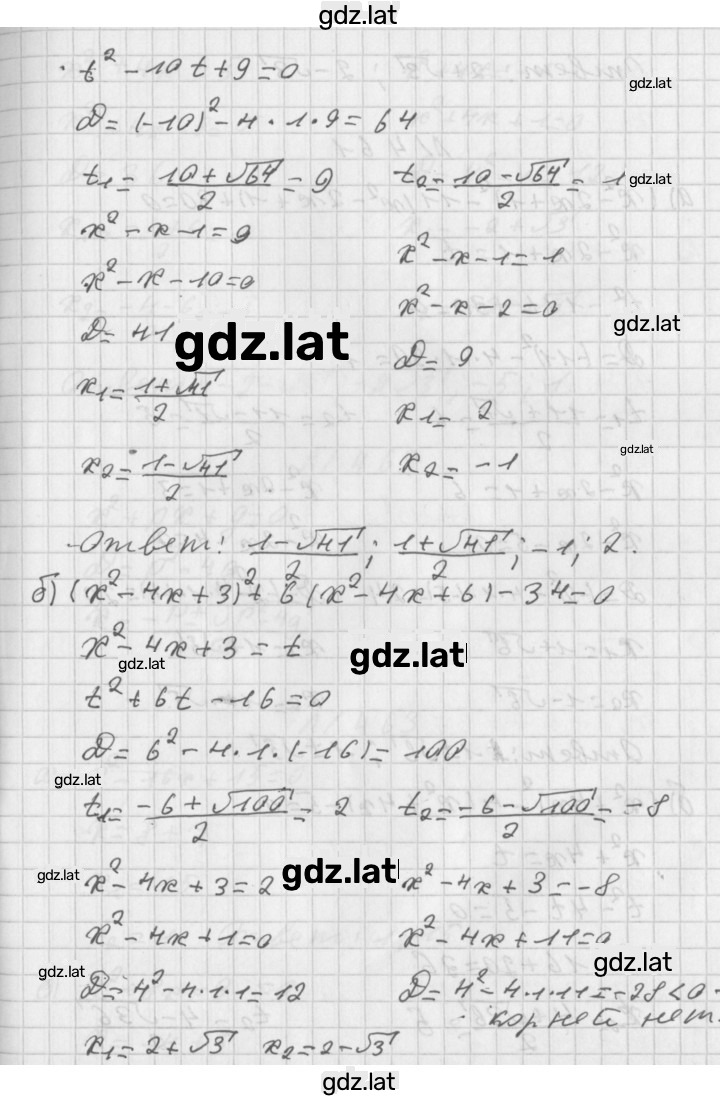 gdz.lat
t² - 10t + 9 = 0
gdz.lat
D = (-10)² - 4 · 1 · 9 = 64
t₁ = (10 + √64)/2 = 9    t₂ = (10 - √64)/2 = 1
gdz.lat
x² - x - 1 = 9    x² - x - 1 = 1
x² - x - 10 = 0    x² - x - 2 = 0
gdz.lat
D = 41    D = 9
gdz.lat
x₁ = (1 + √41)/2    x₁ = 2
gdz.lat
x₂ = (1 - √41)/2    x₂ = -1
Ответ: (1 - √41)/2; (1 + √41)/2; -1; 2.
б) (x² - 4x + 3)² + 6(x² - 4x + 6) - 34 = 0
x² - 4x + 3 = t
gdz.lat
gdz.lat
t² + 6t - 16 = 0
D = 6² - 4 · 1 · (-16) = 100
gdz.lat
t₁ = (-6 + √100)/2 = 2    t₂ = (-6 - √100)/2 = -8
gdz.lat
gdz.lat
x² - 4x + 3 = 2    x² - 4x + 3 = -8
x² - 4x + 1 = 0    x² - 4x + 11 = 0
gdz.lat
gdz.lat
D = 4² - 4 · 1 · 1 = 12    D = 4² - 4 · 1 · 11 = -28 < 0 -
корней нет.
x₁ = 2 + √3    x₂ = 2 - √3
gdz.lat